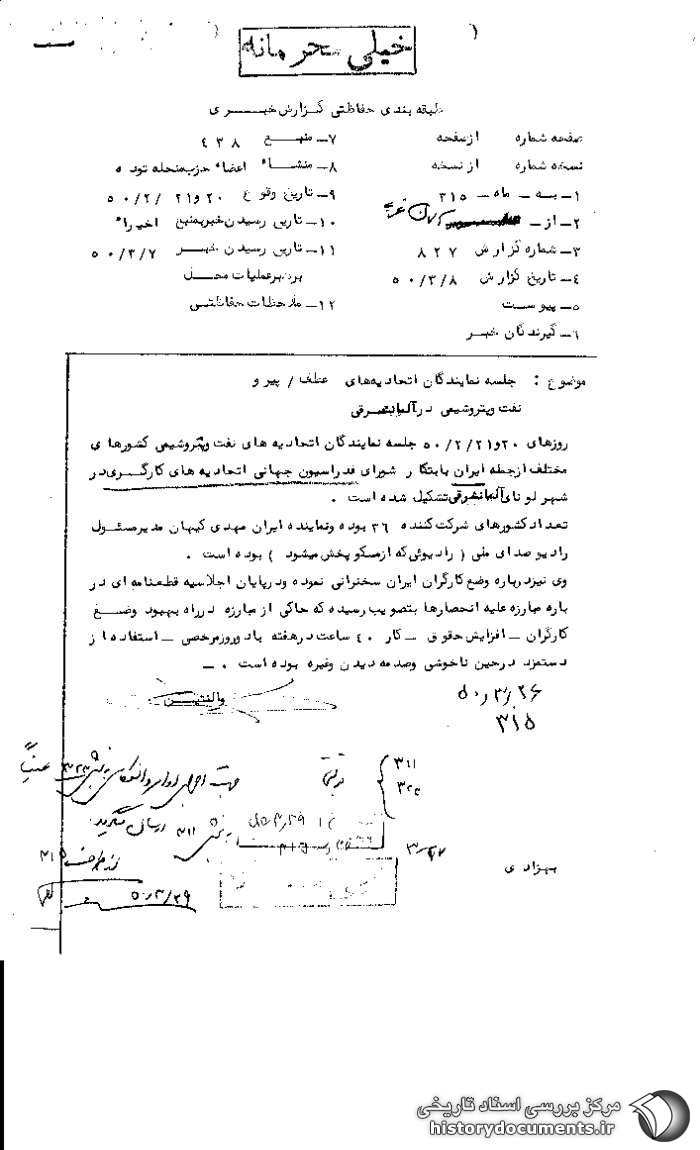 خیلی محرمانه
طبقه بندی حفاظتی گزارش خبری
صفحه شماره از صفحه
نسخه شماره از نسخه
۱ـ به ـ ماه ـ ۳۱۵
۲ـ از ـ
۳ـ شماره گزارش ۸۲۷
۴ـ تاریخ گزارش ۵۰/۳/۸
۵ـ پیوست
۶ـ گیرندگان خبر
۷ـ منبع ۴۳۸
۸ـ منشاء اعضاء حزب منحله توده
۹ـ تاریخ وقوع ۲۰ و ۲۱ /۲/ ۵۰
۱۰ـ تاریخ رسیدن خبر بمنبع اخیرا"
۱۱ـ تاریخ رسیدن خبر ۵۰/۳/۷
برهبر عملیات محل
۱۲ـ ملاحظات حفاظتی
موضوع : جلسه نمایندگان اتحادیه های عطف / پیرو
نفت و پتروشیمی در آلمان شرقی
روزهای ۲۰ و ۲۱/۲/۵۰ جلسه نمایندگان اتحادیه های نفت و پتروشیمی کشورهای
مختلف از جمله ایران بابتکار شورای فدراسیون جهانی اتحادیه های کارگری در
شهر لونای آلمان شرقی تشکیل شده است .
تعداد کشورهای شرکت کننده ۳۶ بوده و نماینده ایران مهدی کیهان مدیر مسئول
رادیو صدای ملی ( رادیوئی که از مسکو پخش میشود ) بوده است .
وی نیز درباره وضع کارگران ایران سخنرانی نموده و در پایان اجلاسیه قطعنامه ای در
باره مبارزه علیه انحصارها بتصویب رسیده که حاکی از مبارزه در راه بهبود وضع
کارگران ـ افزایش حقوق ـ کار ۴۰ ساعت در هفته با دو روز مرخصی ـ استفاده از
دستمزد در حین ناخوشی و صدمه دیدن و غیره بوده است . ـ
والنتین
۵۰/۳/۲۶
۳۱۵
۳۱۱
بهزادی
۳۱۵
۵۰/۳/۲۹
مرکز بررسی اسناد تاریخی
historydocuments.ir